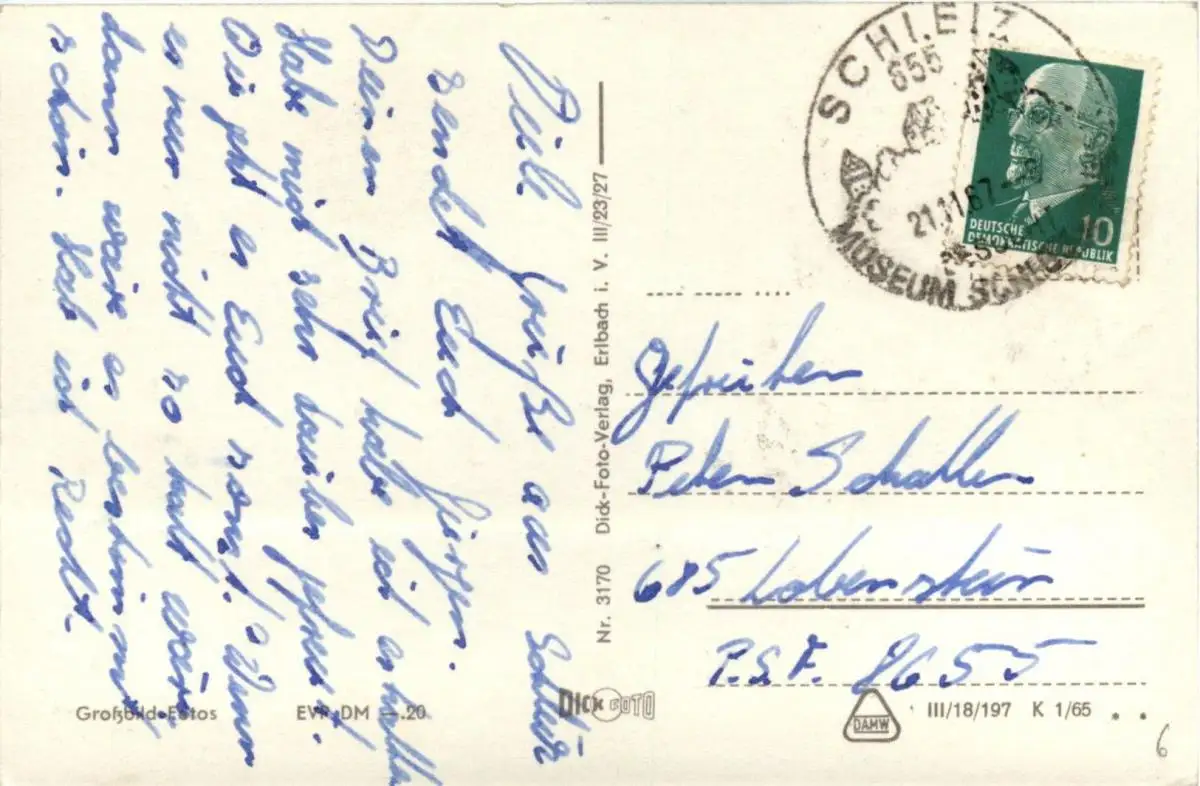 Viele Grüße aus Schleiz
sendet Euch
Jürgen.
Deinen Brief habe ich erhalten
Habe mich sehr darüber gefreut.
Wie geht es Euch sonst. Wenn
es nur nicht so kalt wäre
dann wäre es bestimmt
schön. Hab ich Recht.
Großbild-Fotos EVP DM -.20
Nr. 3170 Dick-Foto-Verlag, Erlbach i. V. III/23/27
DICK FOTO
SCHLEIZ
655
21.11.67
MUSEUM SCHLOSS
DEUTSCHE
DEMOKRATISCHE REPUBLIK
10
Gefreiten
Peter Schaller
685 Lobenstein
P.S.F. 8655
DAMW
III/18/197 K 1/65
6